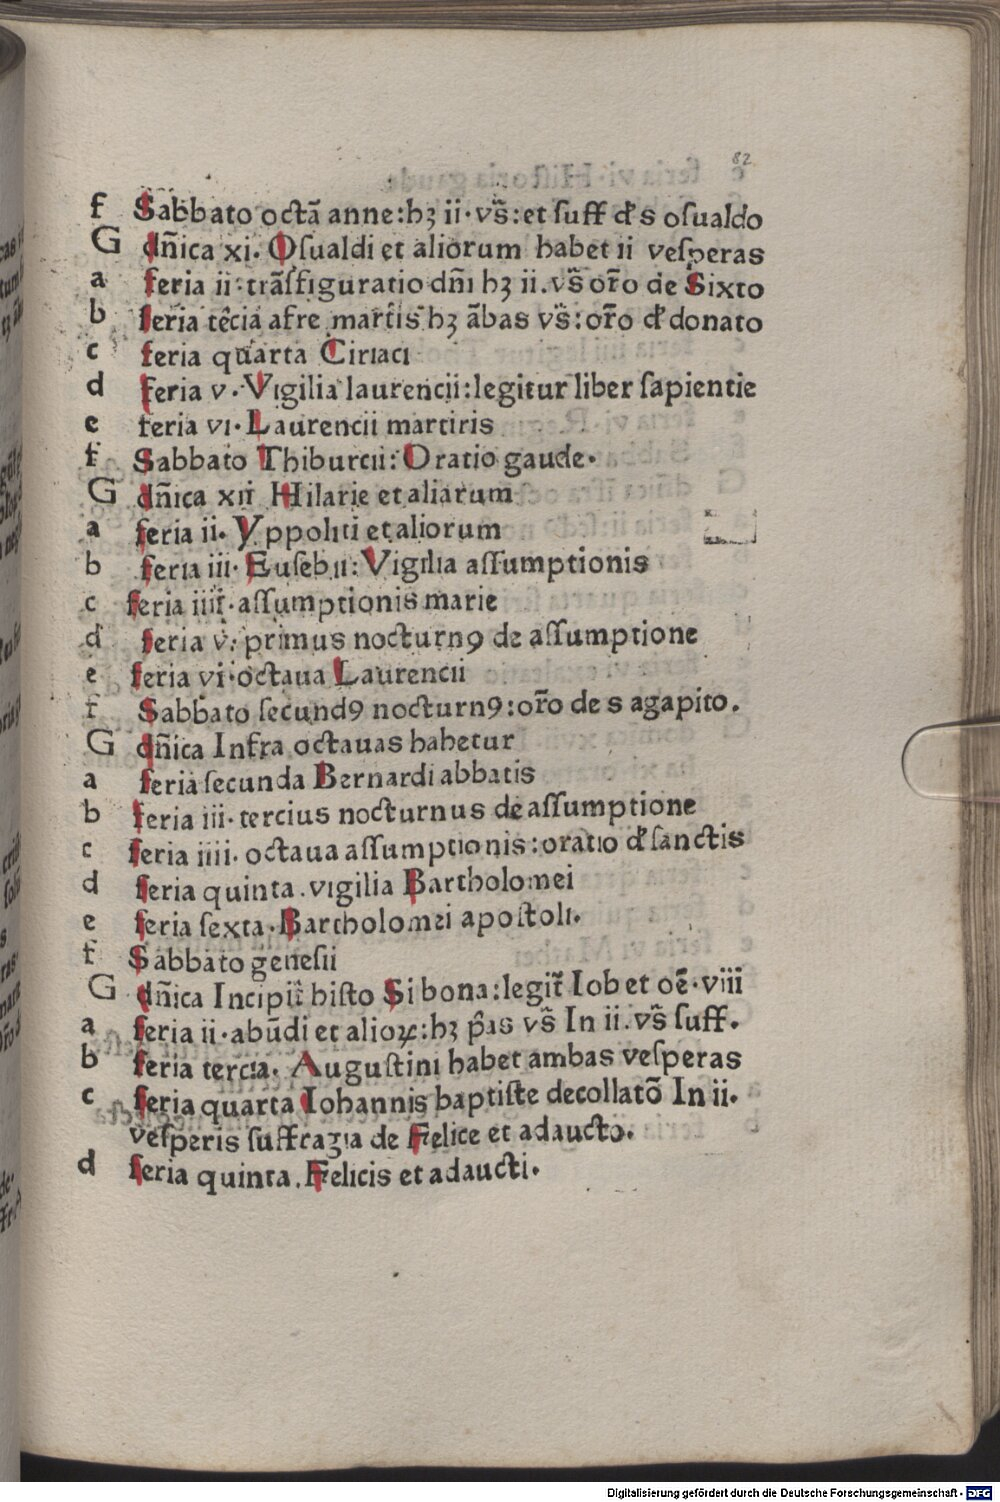 82
f Sabbato octã anne:hꝫ ii·vs̃:et ſuff dĕ s oſualdo
G dñica xi. Oſualdi et aliorum habet ii veſperas
a feria ii·trãſfiguratio dñi hꝫ ii.vs̃ or̃o de Sixto
b feria têcia afre mart̂is hꝫ ãbas vs̃:or̃o dĕ donato
c feria quarta Ciriaci
d feria v·Vigilia laurencii:legitur liber ſapientie
e feria vi·Laurencii martiris
f Sabbato Thiburcii:Oratio gaude·
G dñica xii Hilarie et aliarum
a feria ii·Yppoliti et aliorum
b feria iii·Euſebii:Vigilia aſſumptionis
c feria iiii·aſſumptionis marie
d feria v·primus nocturnꝯ de aſſumptione
e feria vi·octaua Laurencii
f Sabbato ſecundꝯ nocturnꝯ:or̃o de s agapito.
G dñica Infra octauas habetur
a feria ſecunda Bernardi abbatis
b feria iii·tercius nocturnus de aſſumptione
c feria iiii·octaua aſſumptionis:oratio dĕ ſanctis
d feria quinta.vigilia Bartholomei
e feria ſexta·Bartholomei apoſtoli·
f Sabbato geneſii
G dñica Incipit̃ hiſto Si bona:legit̃ Iob et oẽ·viii
a feria ii·abũdi et alioꝝ:hꝫ p̂as vs̃ In ii.vs̃ ſuff.
b feria tercia. Auguſtini habet ambas veſperas
c feria quarta Iohannis baptiſte decollatõ In ii.
veſperis ſuffragia de Felice et adaucto.
d feria quinta.Felicis et adaucti.
Digitalisierung gefördert durch die Deutsche Forschungsgemeinschaft - DFG